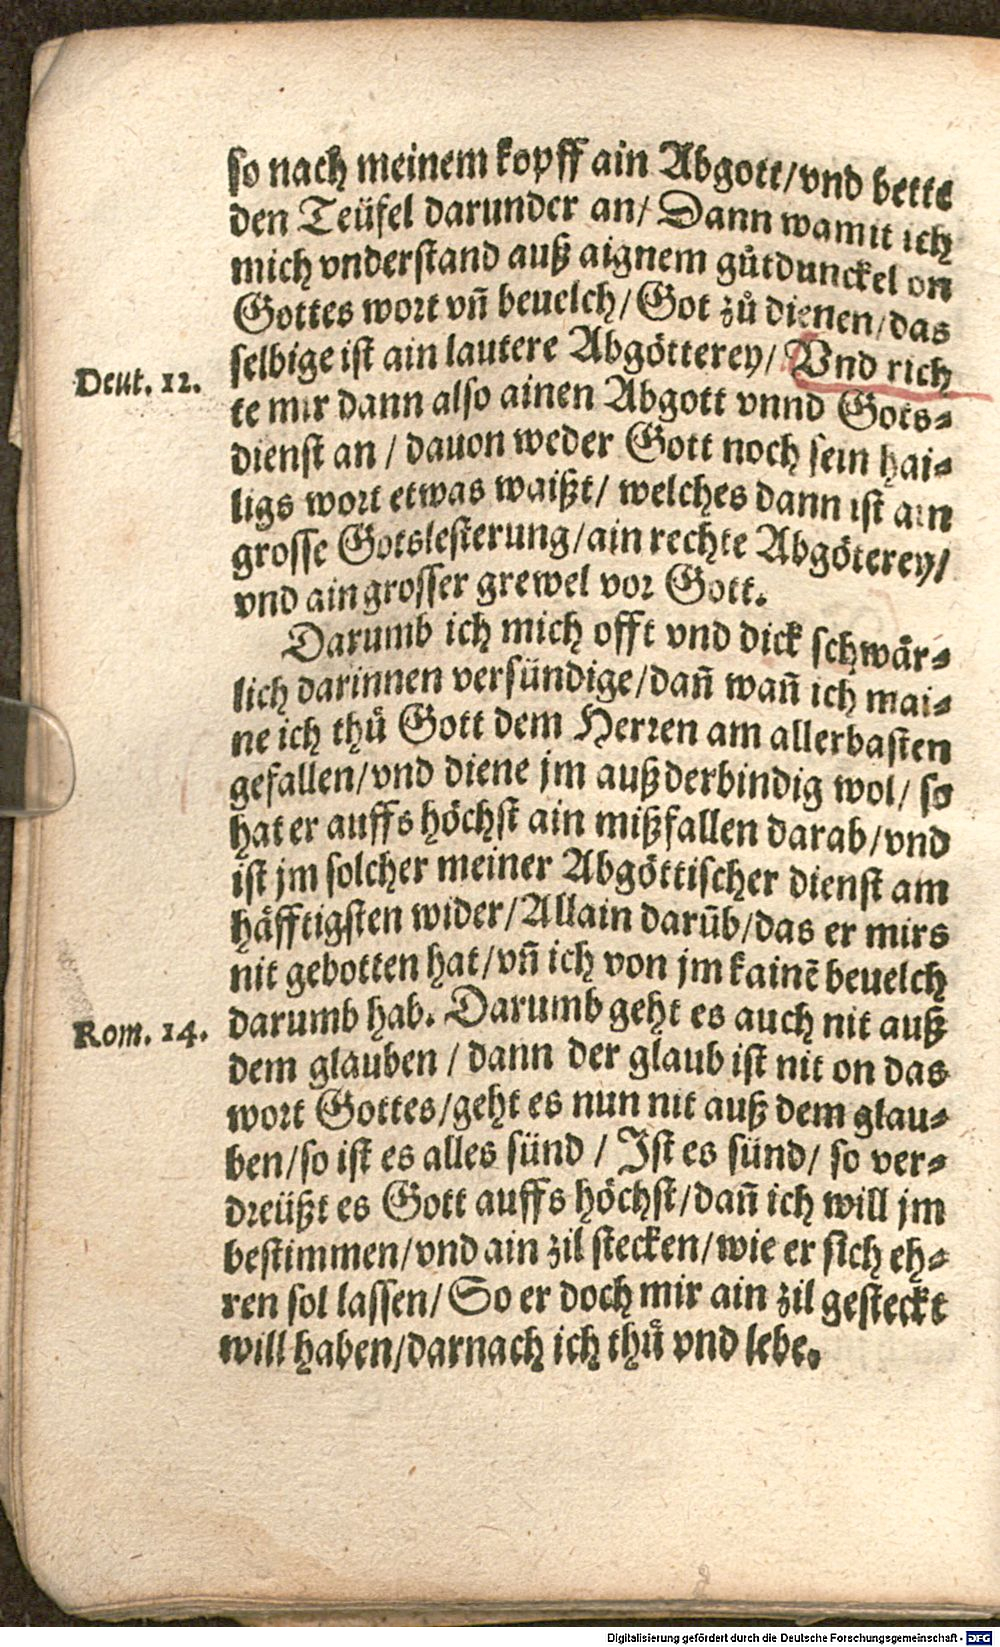 so nach meinem kopff ain Abgott/vnd bette
den Teüfel darunder an/ Dann wamit ich
mich vnderstand auß aignem gůtdunckel on
Gottes wort vñ beuelch/Got zů dienen/das
selbige ist ain lautere Abgötterey/ Vnd rich
Deut. 12.
te mir dann also ainen Abgott vnnd Gots-
dienst an / dauon weder Gott noch sein hai-
ligs wort etwas waißt/ welches dann ist ain
grosse Gotslesterung/ain rechte Abgöterey/
vnd ain grosser grewel vor Gott.
Darumb ich mich offt vnd dick schwår-
lich darinnen versündige/dañ wañ ich mai-
ne ich thů Gott dem Herren am allerbasten
gefallen/vnd diene jm außderbindig wol/ so
hat er auffs höchst ain mißfallen darab/vnd
ist jm solcher meiner Abgöttischer dienst am
häfftigsten wider/Allain darūb/das er mirs
nit gebotten hat/vñ ich von jm kainē beuelch
darumb hab. Darumb geht es auch nit auß
Rom. 14.
dem glauben / dann der glaub ist nit on das
wort Gottes/geht es nun nit auß dem glau-
ben/so ist es alles sünd / Ist es sünd/ so ver-
dreüßt es Gott auffs höchst/dañ ich will jm
bestimmen/vnd ain zil stecken/wie er sich eh-
ren sol lassen/ So er doch mir ain zil gesteckt
will haben/darnach ich thů vnd lebe.
Digitalisierung gefördert durch die Deutsche Forschungsgemeinschaft - DFG